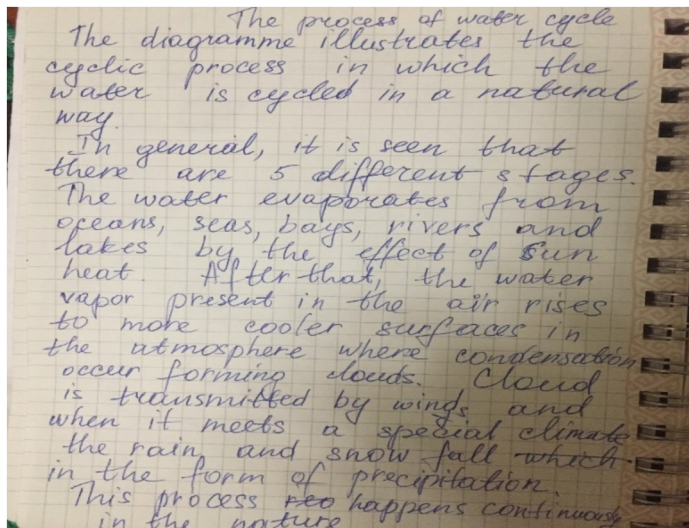 The process of water cycle
The diagramme illustrates the
cyclic process in which the
water is cycled in a natural
way.
In general, it is seen that
there are 5 different stages.
The water evaporates from
oceans, seas, bays, rivers and
lakes by the effect of Sun
heat. After that, the water
vapor present in the air rises
to more cooler surfaces in
the atmosphere where condensation
occur forming clouds. Cloud
is transmitted by winds and
when it meets a special climate
the rain and snow fall which
in the form of precipitation.
This process happens continuously
in the nature